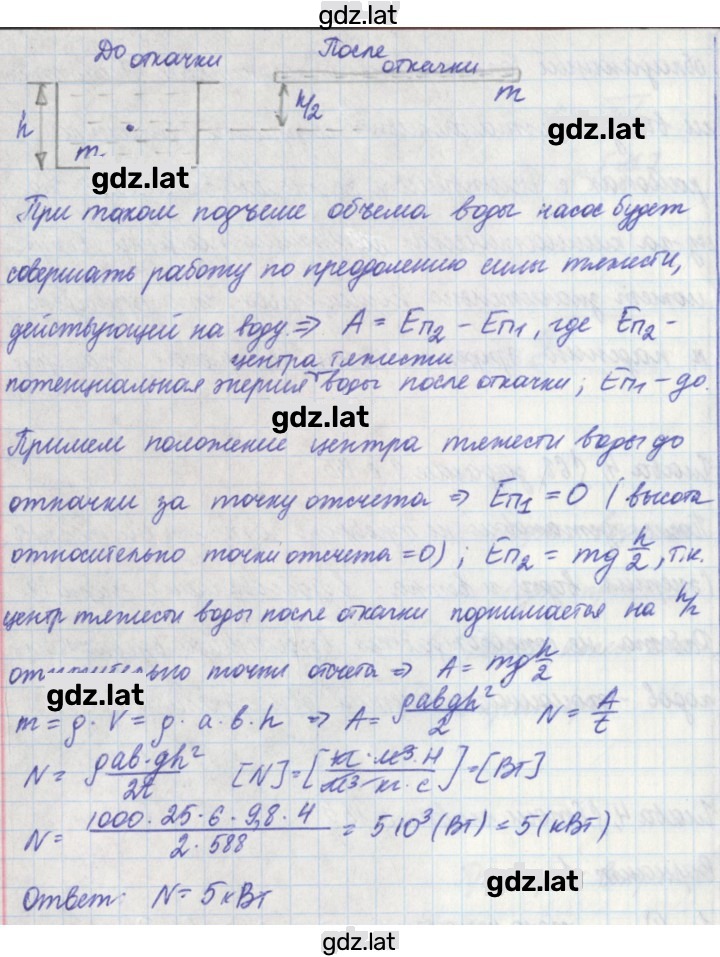 gdz.lat
До откачки
После откачки
h
m
h/2
m
gdz.lat
gdz.lat
При таком подъеме объема воды насос будет
совершать работу по преодолению силы тяжести,
действующей на воду. => A = Eп2 - Eп1, где Eп2 -
центра тяжести
потенциальная энергия воды после откачки; Eп1 - до.
gdz.lat
Примем положение центра тяжести воды до
откачки за точку отсчета => Eп1 = 0 (высота
относительно точки отсчета = 0); Eп2 = mg h/2, т.к.
центр тяжести воды после откачки поднимается на h/2
относительно точки отсчета => A = mg h/2
gdz.lat
m = ρ · V = ρ · a · b · h => A = ρabgh²/2 N = A/t
N = ρab·gh²/2t [N] = [кг·м³·Н/м³·кг·с] = [Вт]
N = 1000·25·6·9,8·4/2·588 = 5 10³ (Вт) = 5 (кВт)
Ответ: N = 5 кВт
gdz.lat
gdz.lat